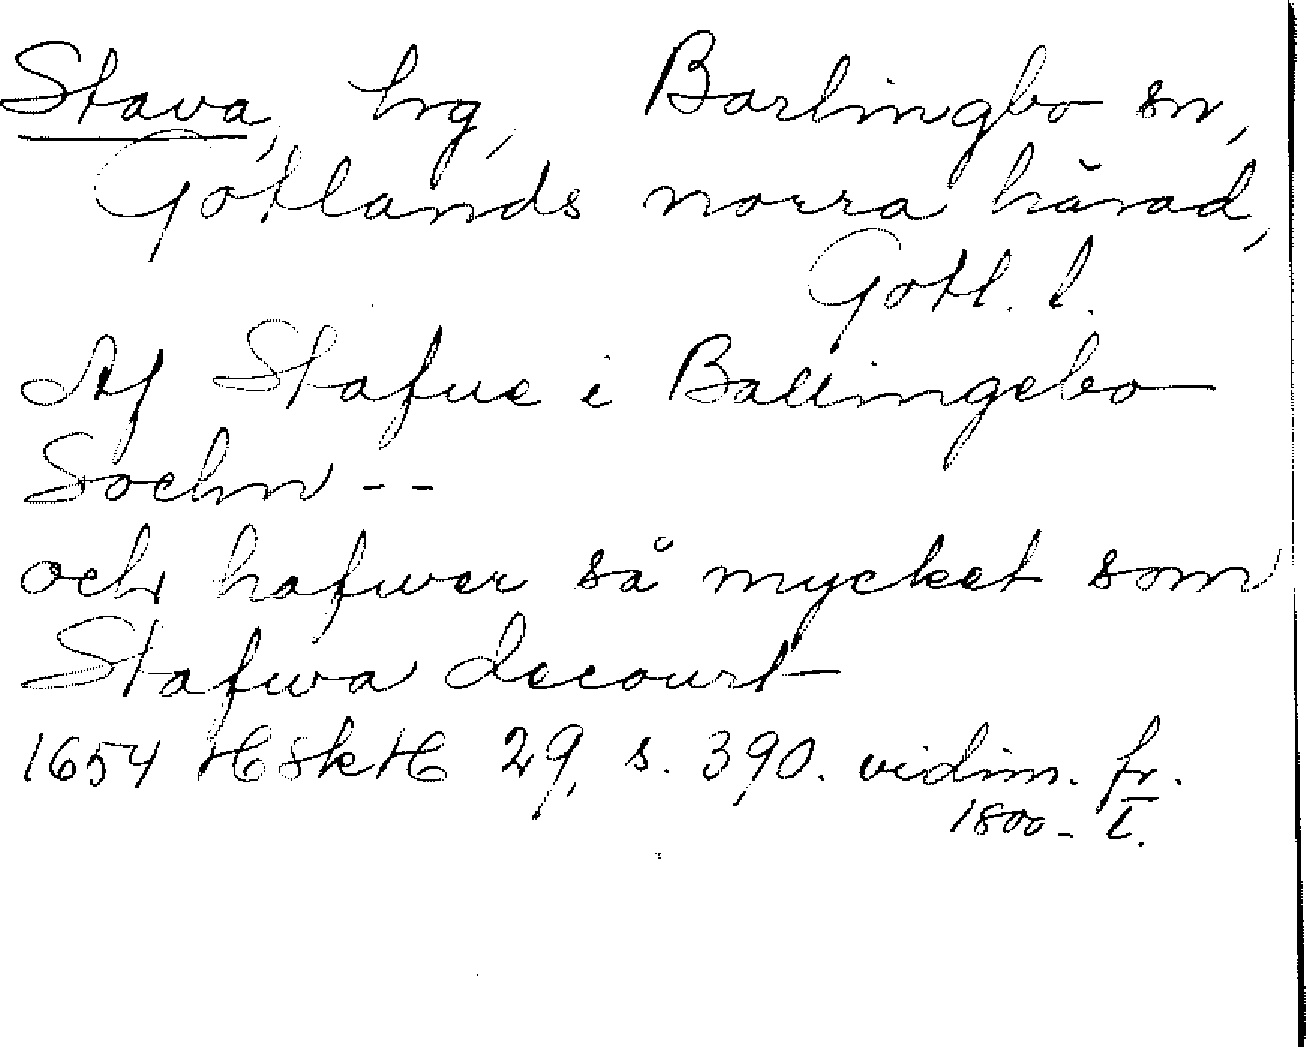 Stava, hrg, Barlingbo sn,
Gotlands norra härad,
Gotl. l.
Af Stafue i Ballingebo
Sochn --
och hafwer så mycket som
Stafwa decourt
1654 HSkH 29, s. 390. vidim. fr.
1800-t.